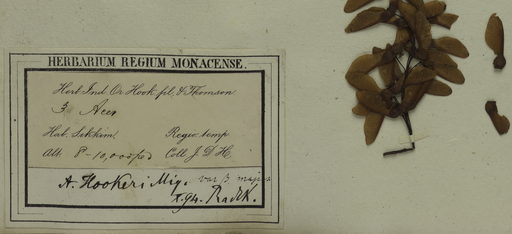 HERBARIUM REGIUM MONACENSE.
Herb. Ind. Or. Hook. fil. & Thomson
3 Acer
Hab. Sikkim. Regio temp
Alt. 8-10,000 ped Coll. J. D. H.
A. Hookeri Miq. var β. major
X.94. Radlk.